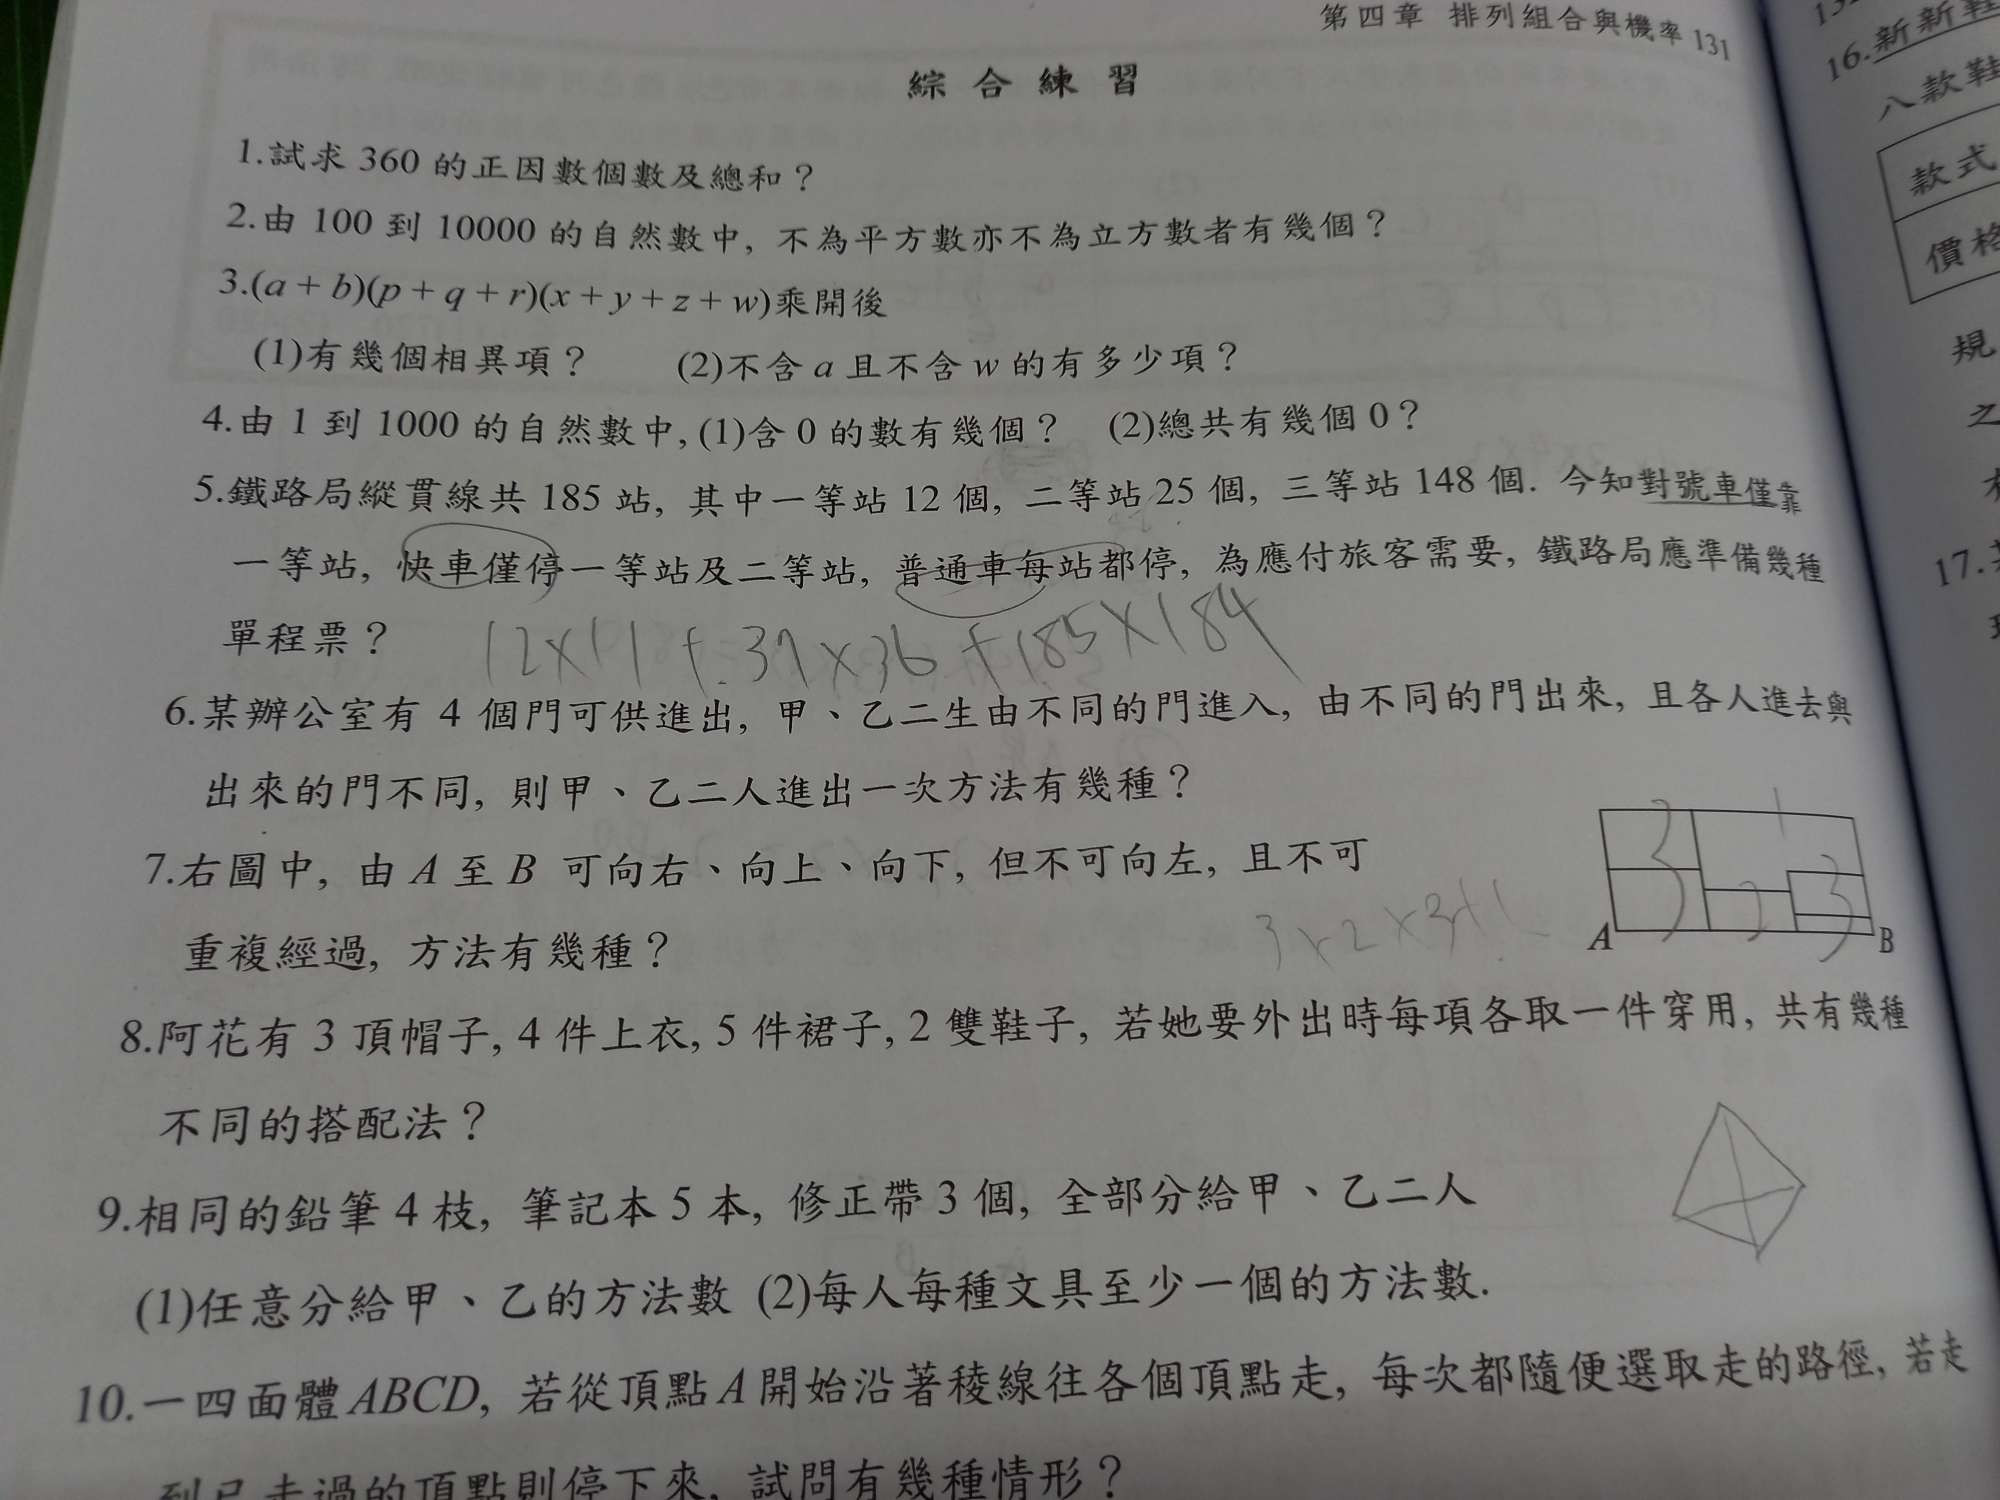 第四章 排列組合與機率 131
綜合練習
1.試求 360 的正因數個數及總和？
2.由 100 到 10000 的自然數中, 不為平方數亦不為立方數者有幾個？
3.(a + b)(p + q + r)(x + y + z + w)乘開後
(1)有幾個相異項？ (2)不含 a 且不含 w 的有多少項？
4.由 1 到 1000 的自然數中, (1)含 0 的數有幾個？ (2)總共有幾個 0？
5.鐵路局縱貫線共 185 站, 其中一等站 12 個, 二等站 25 個, 三等站 148 個. 今知對號車僅靠
一等站, 快車僅停一等站及二等站, 普通車每站都停, 為應付旅客需要, 鐵路局應準備幾種
單程票？
12×11+37×36+185×184
6.某辦公室有 4 個門可供進出, 甲、乙二生由不同的門進入, 由不同的門出來, 且各人進去與
出來的門不同, 則甲、乙二人進出一次方法有幾種？
7.右圖中, 由 A 至 B 可向右、向上、向下, 但不可向左, 且不可
重複經過, 方法有幾種？
3×2×3+1
3 1 2 3
A B
8.阿花有 3 頂帽子, 4 件上衣, 5 件裙子, 2 雙鞋子, 若她要外出時每項各取一件穿用, 共有幾種
不同的搭配法？
9.相同的鉛筆 4 枝, 筆記本 5 本, 修正帶 3 個, 全部分給甲、乙二人
(1)任意分給甲、乙的方法數 (2)每人每種文具至少一個的方法數.
10.一四面體 ABCD, 若從頂點 A 開始沿著稜線往各個頂點走, 每次都隨便選取走的路徑, 若走
到已走過的頂點則停下來, 試問有幾種情形？
16.新新鞋
八款鞋
款式
價格
規
之
17.